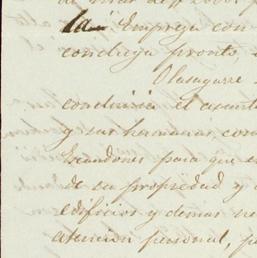 la Empresa con
concluya pronto
Olasagarre
concluiría el asunto
y sus hermanas, co
Escandones para que e
de su propiedad y
edificios y demas ne
atencion personal, p